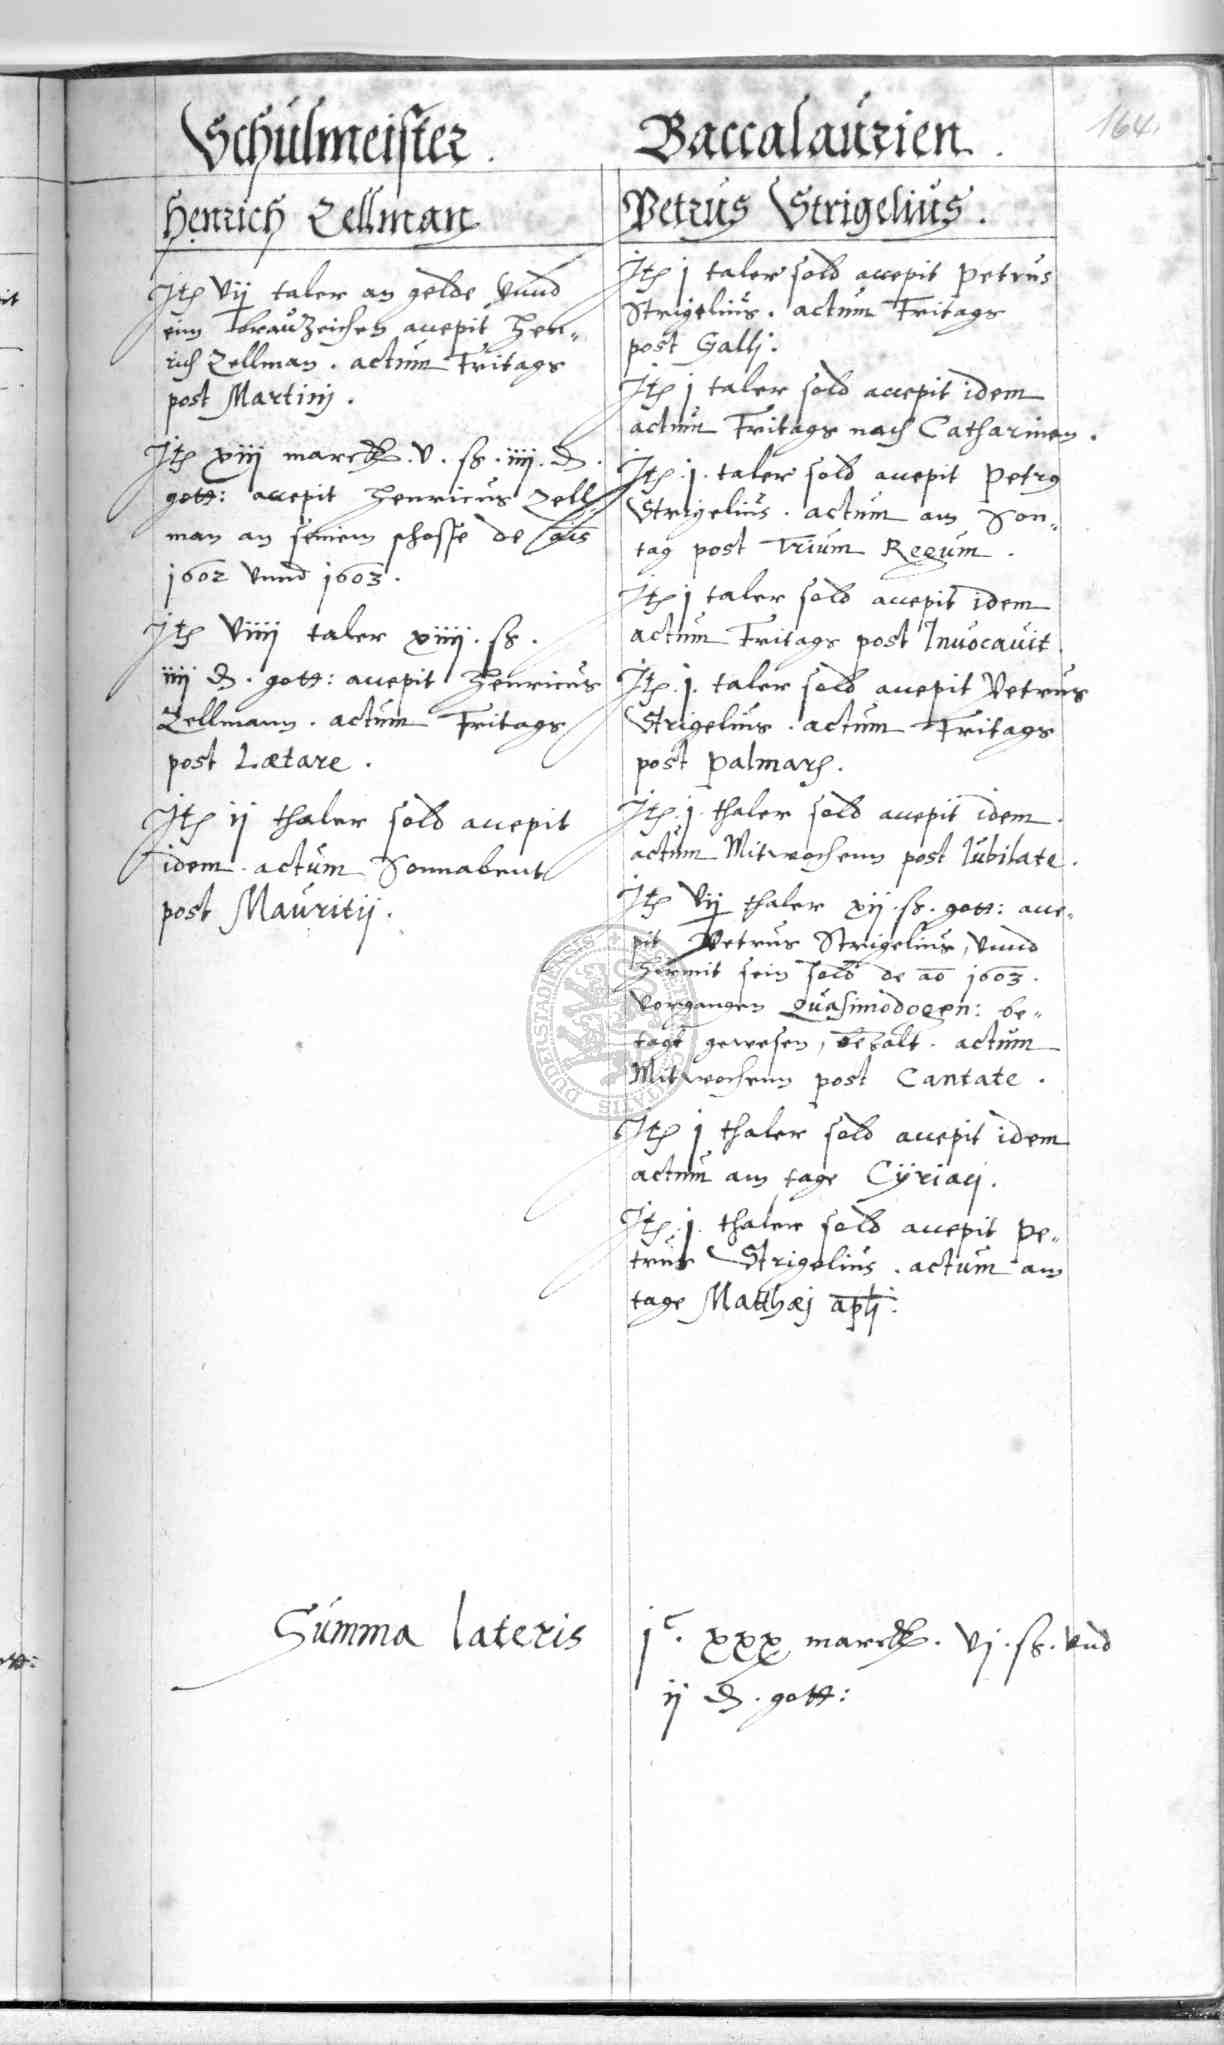 164.
Schulmeister.
Henrich Zellman
Jtem vij taler an gelde vnnd
ein brauzeichen accepit Hen„
rich Zellman. actum Fritags
post Martinj.
Jtem xiij marck. v. ß. iiij. d.
gott: accepit Henricus Zell„
man an seinem schosse de
1602 vnnd 1603.
Jtem viiij taler xiiij. ß.
iiij d. gott: accepit Henricus
Zellmann. actum Fritags
post Lætare.
Jtem ij thaler sold accepit
idem. actum Sonnabent
post Mauritij.
Baccalaurien.
Petrus Strigelius.
Jtem j taler sold accepit Petrus
Strigelius. actum Fritags
post Gallj.
Jtem j taler sold accepit idem
actum Fritags nach Catharinen.
Jtem .j. taler sold accepit Petrus
Strigelius. actum am Son„
tag post Trium Regum.
Jtem j taler sold accepit idem
actum Fritags post Invocauit.
Jtem .j. taler sold accepit Petrus
Strigelius. actum Fritags
post Palmarum.
Jtem .j. thaler sold accepit idem.
actum Mitwochenn post Iubilate.
Jtem vij thaler xij. ß. gott: acce„
pit Petrus Strigelius, vnnd
hirmit sein sold de ao 1603.
vorgangen Quasimodogen: be„
tagt gewesen, bezalt. actum
Mitwochenn post Cantate.
Jtem j thaler sold accepit idem
actum am tage Cÿriacj.
Jtem .j. thaler sold accepit Pe„
trus Strigelius. actum am
tage Matthæj aplj.
Summa lateris
jc. xxx marck. vj. ß. vnd
ij d. gott:
DUDERSTADIENSIS